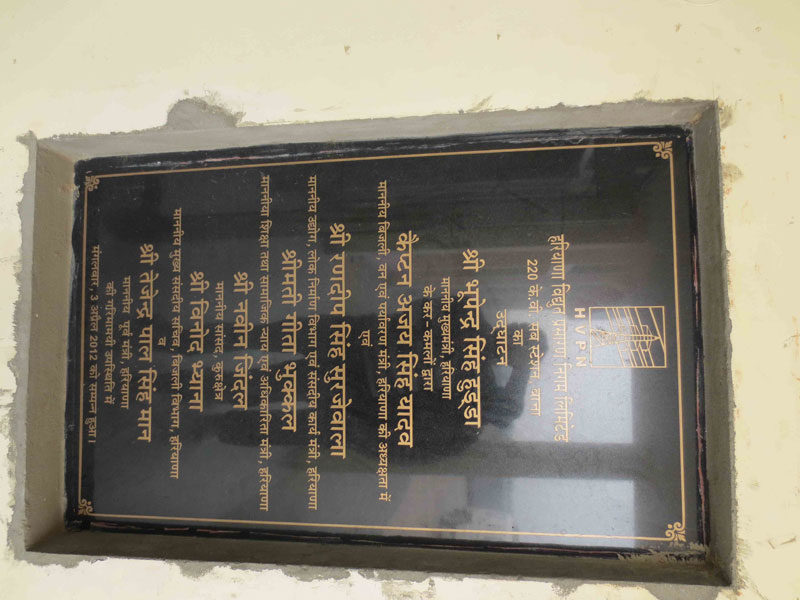 HVPN
हरियाणा विद्युत प्रसारण निगम लिमिटेड
220 के.वी. सब स्टेशन,
का
उद्घाटन
श्री भूपेन्द्र सिंह हुड्डा
माननीय मुख्यमंत्री, हरियाणा
के कर - कमलों द्वारा
कैप्टन अजय सिंह यादव
माननीय बिजली, वन एवं पर्यावरण मंत्री, हरियाणा की अध्यक्षता में
एवं
श्री रणदीप सिंह सुरजेवाला
माननीय उद्योग, लोक निर्माण विभाग एवं संसदीय कार्य मंत्री, हरियाणा
श्रीमती गीता भुक्कल
माननीया शिक्षा तथा सामाजिक न्याय एवं अधिकारिता मंत्री, हरियाणा
श्री नवीन जिंदल
माननीय सांसद, कुरुक्षेत्र
श्री विनोद भ्याना
माननीय मुख्य संसदीय सचिव, बिजली विभाग, हरियाणा
व
श्री तेजेन्द्र पाल सिंह मान
माननीय पूर्व मंत्री, हरियाणा
की गरिमामयी उपस्थिति में
मंगलवार, 3 अप्रैल 2012 को सम्पन्न हुआ।